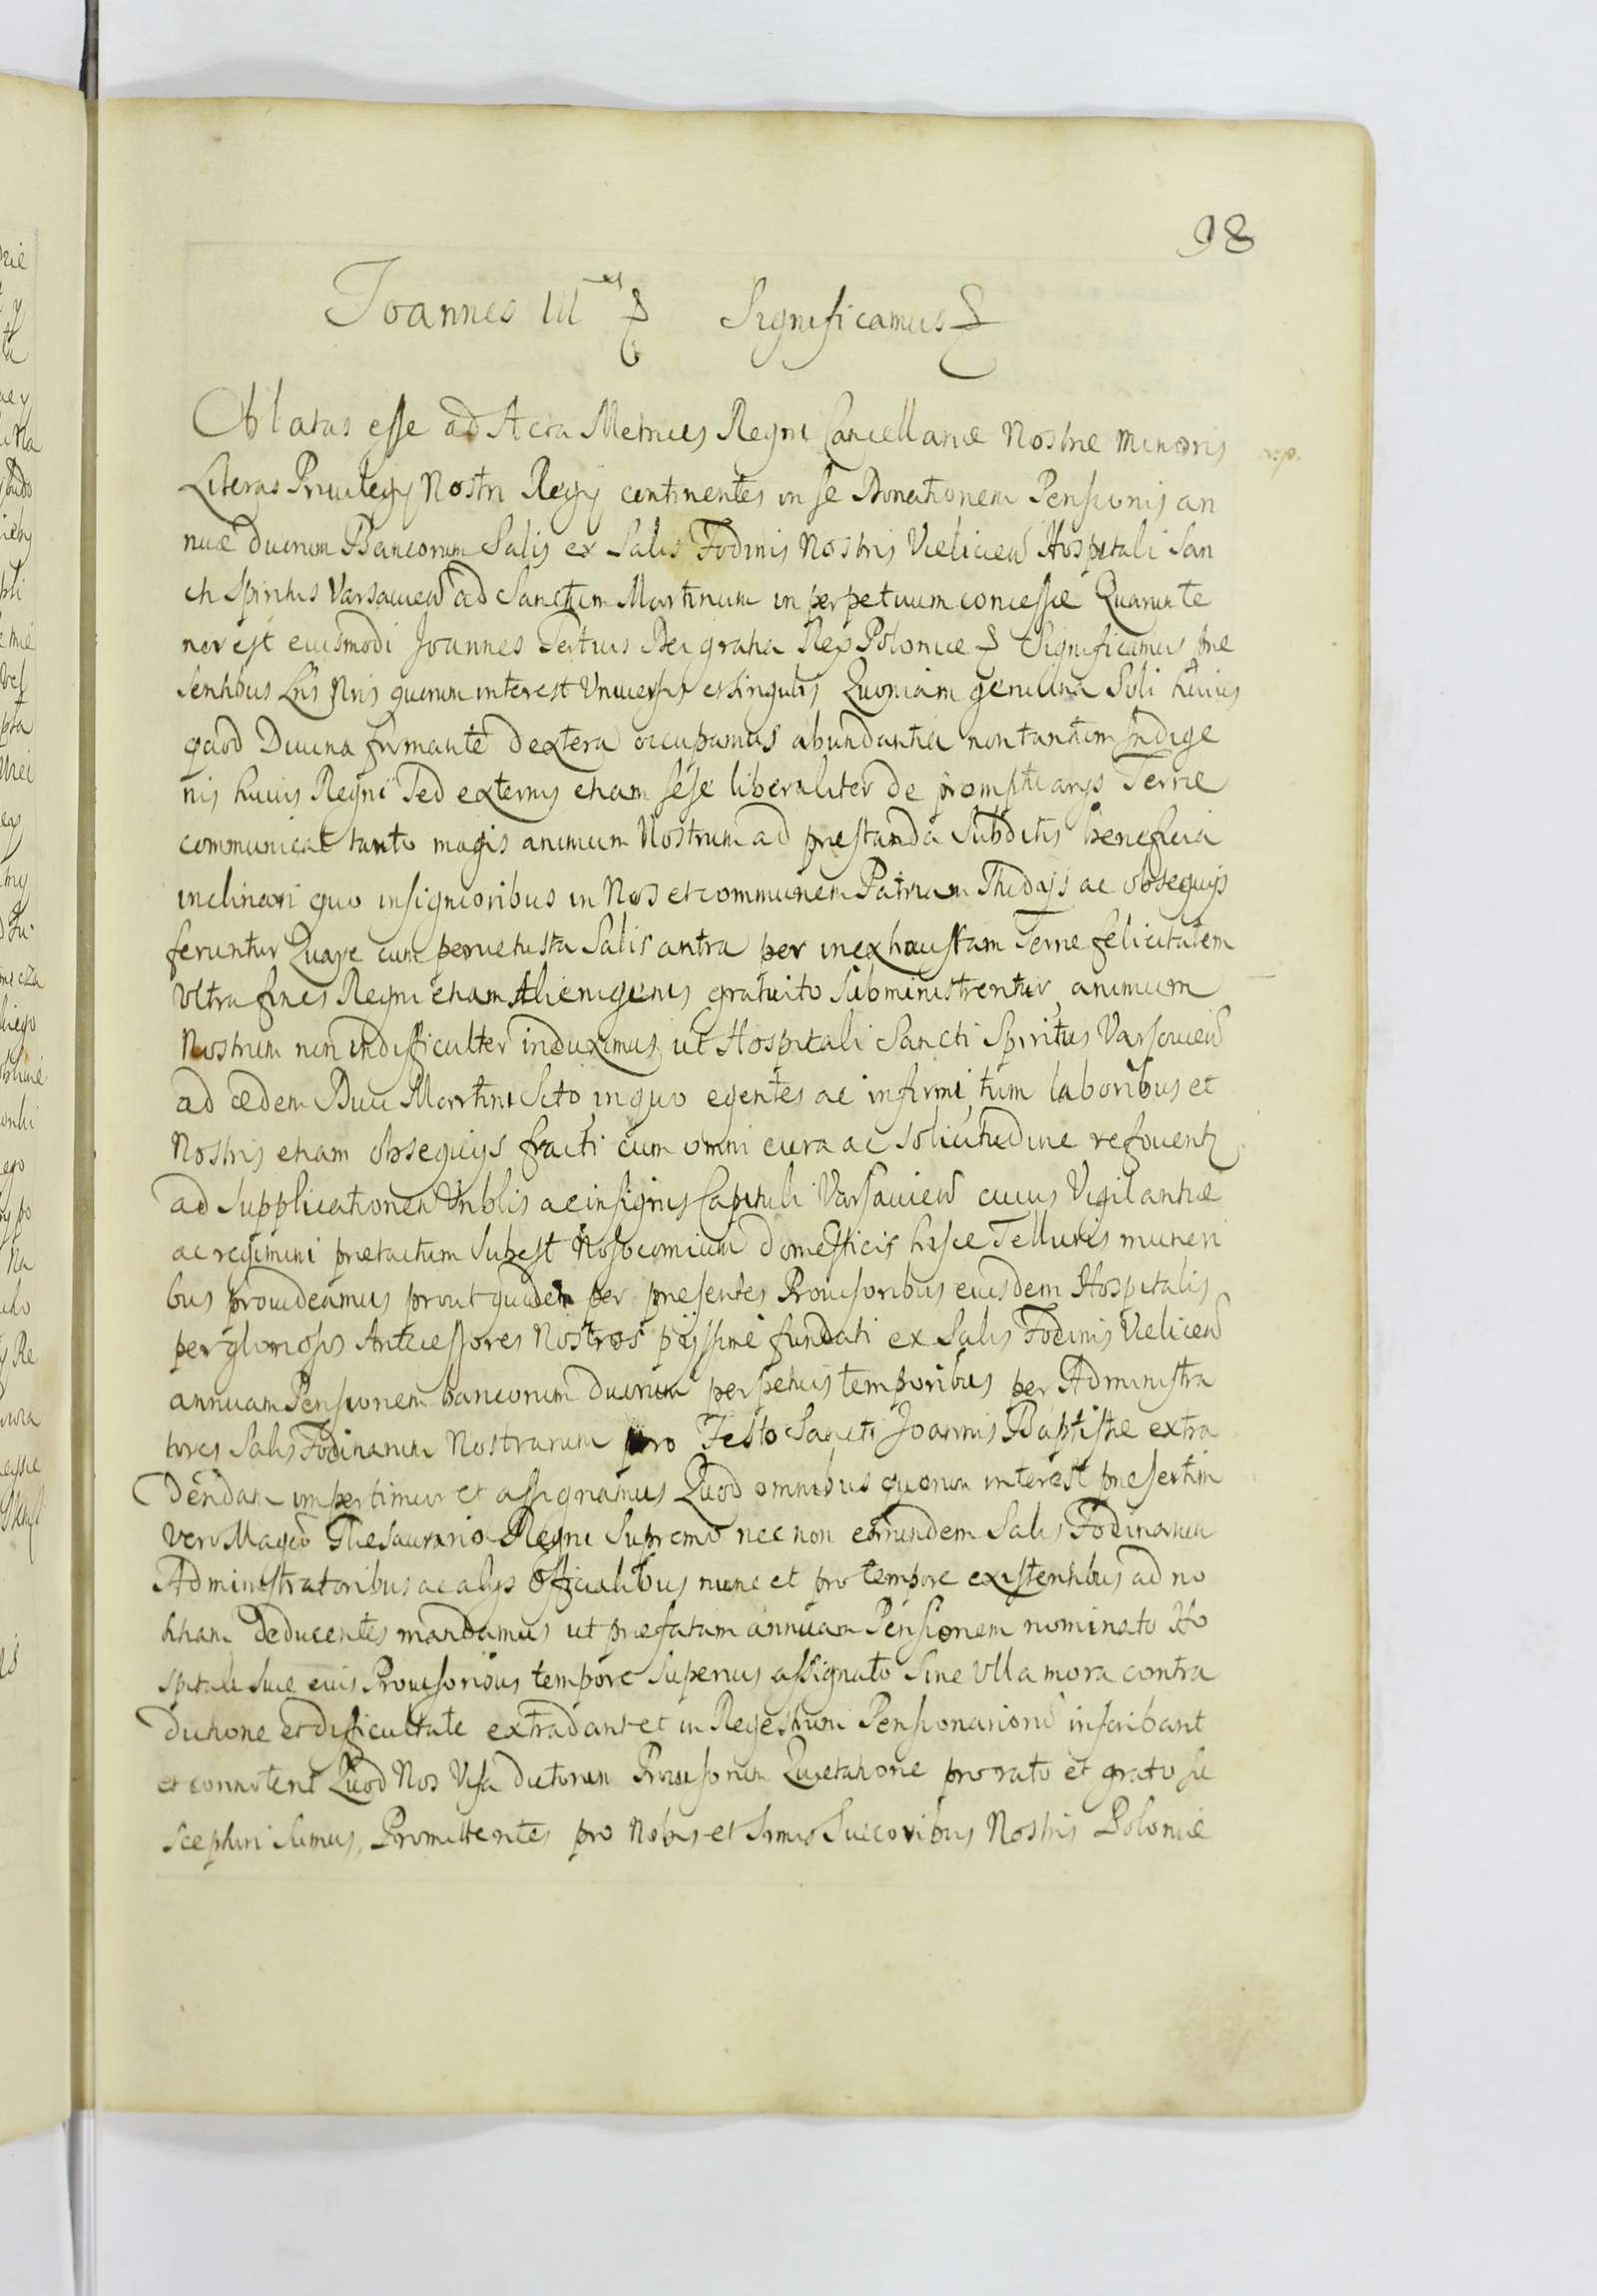 98
Joannes III Significamus
Oblatas esse ad Acta Metrices Regni Cancellariæ Nostræ Minoris
Literas Privilegij Nostri Regij continentes in se Donationem Pensionis an
nuæ duorum Bancorum Salis ex Salis Fodinis Nostris Vieliceñ Hospitali San
cti Spiritus Varsavieñ ad Sanctum Martinum in perpetuum concessæ Quarum te
nor est eiusmodi Joannes Tertius Dei gratia Rex Poloniæ Significamus præ
sentibus Lris Nris quorum interest Universis et singulis, Quoniam genuina Soli huius
quod Divina firmante dextera occupamus abundantia non tantum Indige
nis huius Regni sed externis etiam sese liberaliter de promptuarijs Terræ
communicat tanto magis animum Nostrum ad præstanda Subditis beneficia
inclinari quo insignioribus in Nos et communem Patriam Studijs ac obsequijs
feruntur Quare cum pervetusta Salis antra per inexhaustam Terræ felicitatem
Ultra fines Regni etiam Alienigenis gratuito Subministrentur animum
Nostrum non indifficulter induximus ut Hospitali Sancti Spiritus Varsavieñ
ad ædem Divi Martini Sito in quo egentes ac infirmi tum laboribus et
Nostris etiam obsequijs fracti cum omni cura ac solicitudine refoventr
ad supplicationem Vnblis ac insignis Capituli Varsavieñ cuius Vigilantiæ
ac regimini prætactum Subest Nosocomium domesticis hisce Telluris muneri
bus provideamus prout quidem per præsentes Provisoribus eiusdem Hospitalis
per gloriosos Antecessores Nostros pijssime fundati ex Salis Fodinis Vieliceñ
annuam Pensionem bancorum duorum perpetuis temporibus per Administra
tores Salis Fodinarum Nostrarum pro Festo Sancti Joannis Baptistæ extra
dendam impertimur et assignamus Quod omnibus quorum interest præsertim
vero Magco Thesaurario Regni Supremo nec non earundem Salis Fodinarum
Administratoribus ac alijs Officialibus nunc et pro tempore existentibus ad no
titiam deducentes mandamus ut præfatam annuam Pensionem nominato Ho
spitali sive eius Provisoribus tempore superius assignato Sine Vlla mora contra
dictione et difficultate extradant et in Regestrum Pensionarioru inscribant
et connotent Quod Nos Visa dictorum Provisorum Quietatione pro rato et grato su
scepturi Sumus, Promittentes pro Nobis et Srmis Succoribus Nostris Poloniæ